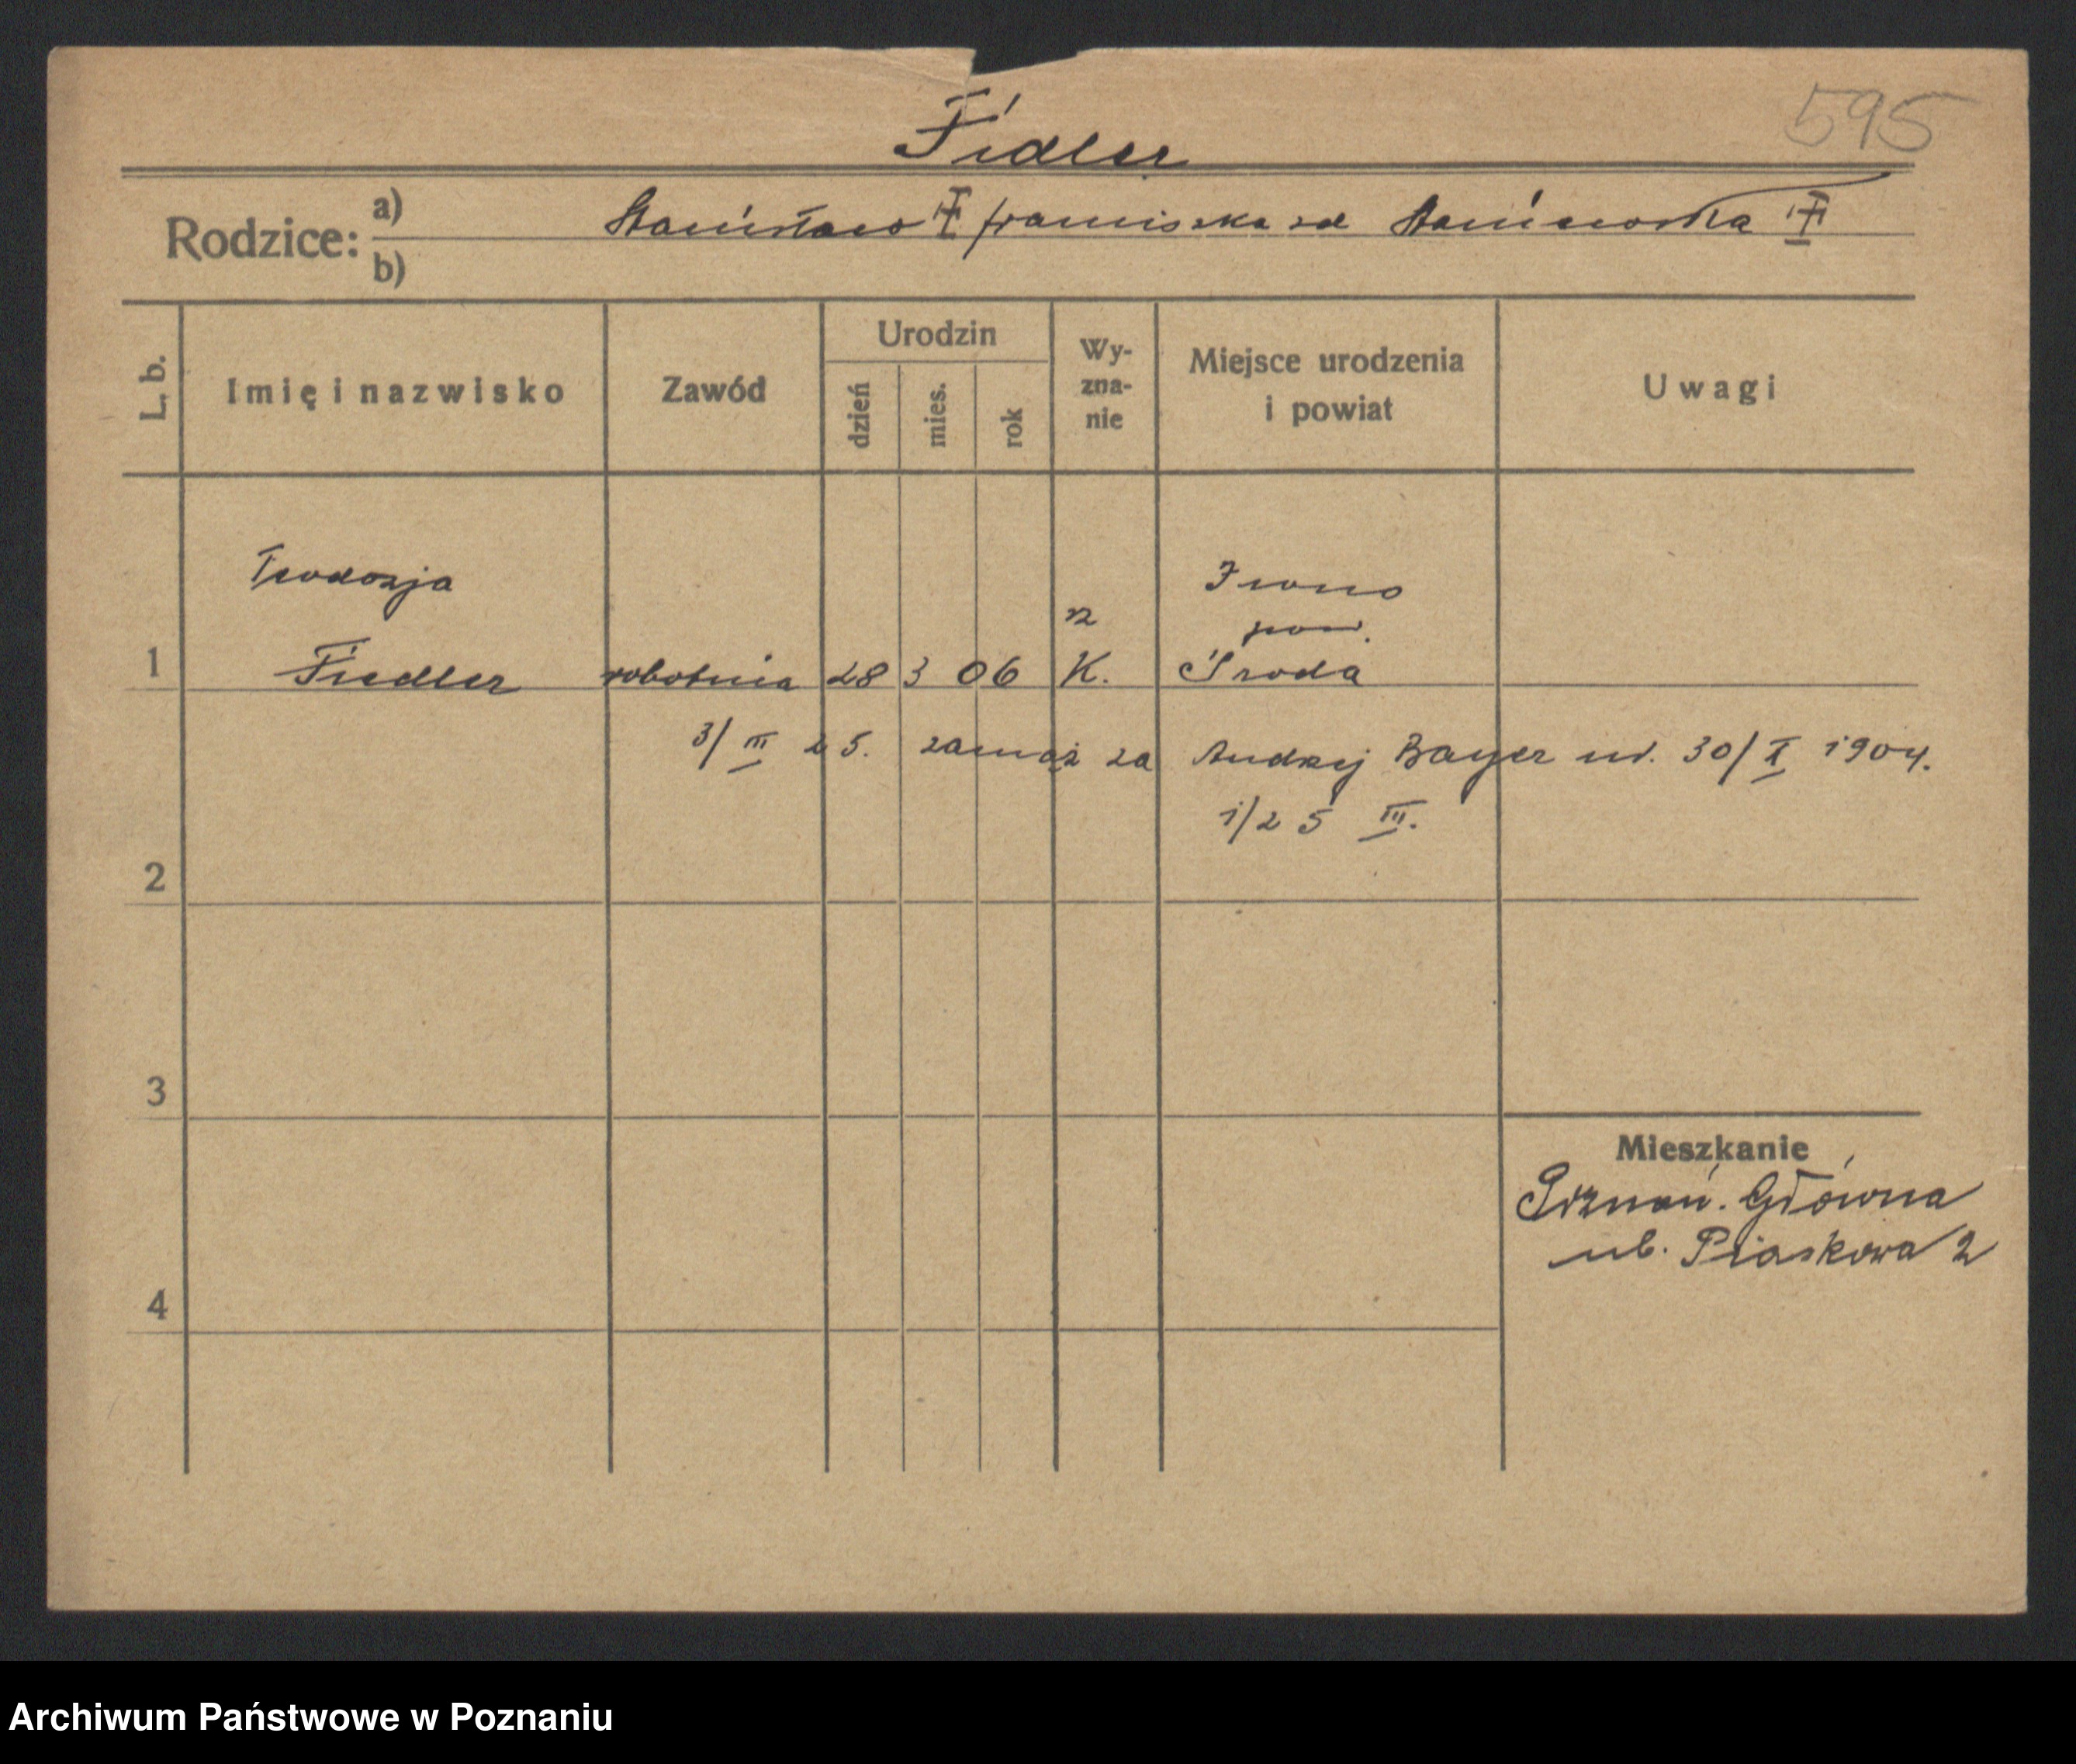 595
Fidler
Rodzice: a) b)
Stanisław Franciszka zd
L. b.
Imię i nazwisko
Zawód
Urodzin
dzień
mies.
rok
Wy-
zna-
nie
Miejsce urodzenia
i powiat
Uwagi
Teodozja
Iwno
rz
pow.
1 Fiedler robotnia 28 3 06 K. Środa
3/III 25. zamąż za Andrzej Bayer ur. 30/X 1904.
1/25 III.
2
3
Mieszkanie
Poznań. Główna
ul. Piaskowa 2
4
Archiwum Państwowe w Poznaniu